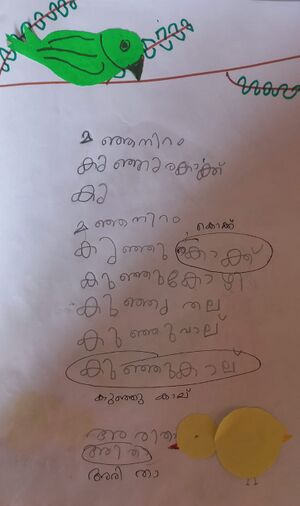 മഞ്ഞനിറം
കു
മഞ്ഞനിറം
കൊക്ക്
കുഞ്ഞു കൊക്ക്
കുഞ്ഞുകോഴി
കുഞ്ഞു തല
കുഞ്ഞുവാല്
കുഞ്ഞുകാല്
കുഞ്ഞു കാല്
അരിതാ
അരിത
അരി താ